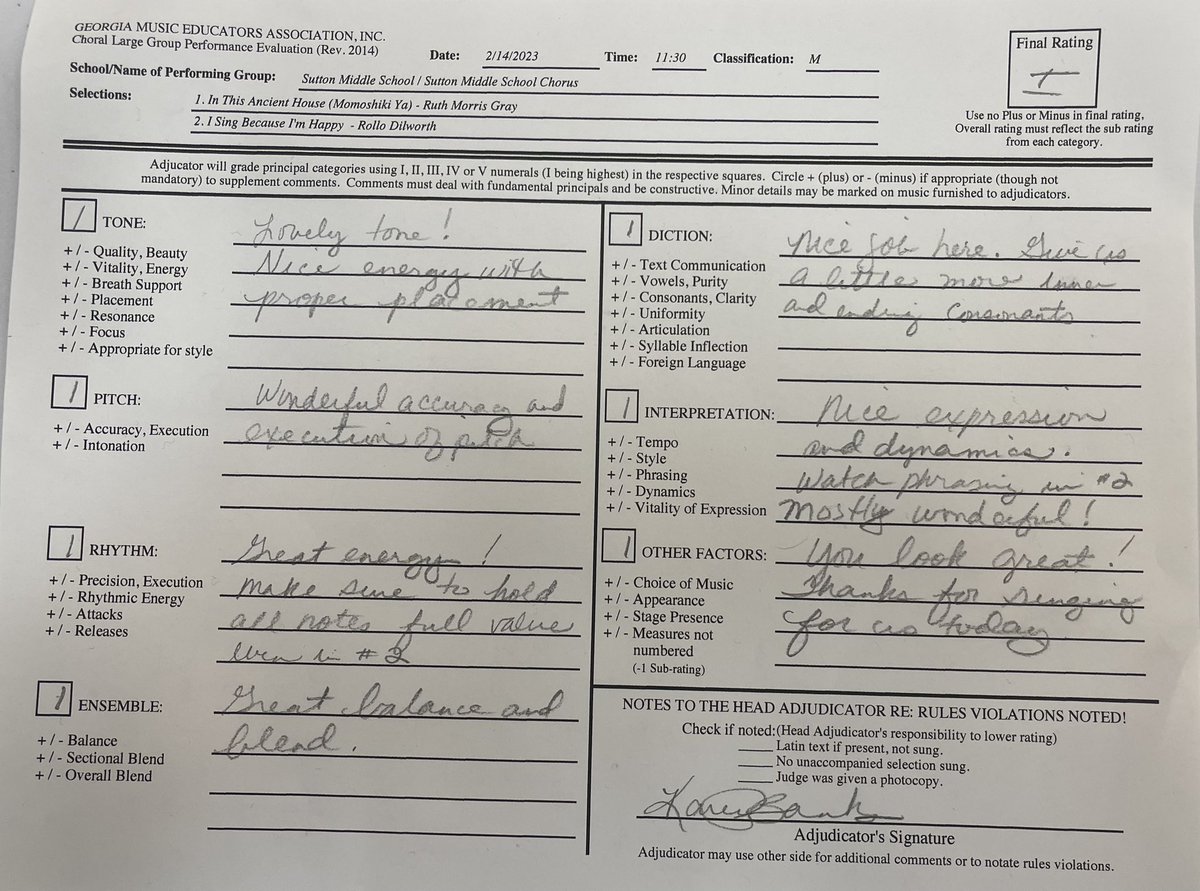 GEORGIA MUSIC EDUCATORS ASSOCIATION, INC.
Choral Large Group Performance Evaluation (Rev. 2014)
Date: 2/14/2023 Time: 11:30 Classification: M
School/Name of Performing Group: Sutton Middle School / Sutton Middle School Chorus
Selections: 1. In This Ancient House (Momoshiki Ya) - Ruth Morris Gray
2. I Sing Because I'm Happy - Rollo Dilworth
Final Rating
I
Use no Plus or Minus in final rating,
Overall rating must reflect the sub rating
from each category.
Adjucator will grade principal categories using I, II, III, IV or V numerals (I being highest) in the respective squares. Circle + (plus) or - (minus) if appropriate (though not
mandatory) to supplement comments. Comments must deal with fundamental principals and be constructive. Minor details may be marked on music furnished to adjudicators.
1 TONE: Lovely tone!
+ / - Quality, Beauty
+ / - Vitality, Energy Nice energy with
+ / - Breath Support
+ / - Placement proper placement
+ / - Resonance
+ / - Focus
+ / - Appropriate for style
1 PITCH: Wonderful accuracy and
+ / - Accuracy, Execution execution of pitch
+ / - Intonation
1 RHYTHM: Great energy!
+ / - Precision, Execution make sure to hold
+ / - Rhythmic Energy
+ / - Attacks all notes full value
+ / - Releases
even in #2
1 ENSEMBLE: Great balance and
+ / - Balance blend.
+ / - Sectional Blend
+ / - Overall Blend
1 DICTION: Nice job here. Give us
+ / - Text Communication
+ / - Vowels, Purity a little more inner
+ / - Consonants, Clarity
+ / - Uniformity and ending consonants
+ / - Articulation
+ / - Syllable Inflection
+ / - Foreign Language
1 INTERPRETATION: Nice expression
+ / - Tempo and dynamics.
+ / - Style
+ / - Phrasing Watch phrasing in #2
+ / - Dynamics
+ / - Vitality of Expression Mostly wonderful!
1 OTHER FACTORS: You look great!
+ / - Choice of Music Thanks for singing
+ / - Appearance
+ / - Stage Presence for us today
+ / - Measures not
numbered
(-1 Sub-rating)
NOTES TO THE HEAD ADJUDICATOR RE: RULES VIOLATIONS NOTED!
Check if noted:(Head Adjudicator's responsibility to lower rating)
Latin text if present, not sung.
No unaccompanied selection sung.
Judge was given a photocopy.
Karen Banks
Adjudicator's Signature
Adjudicator may use other side for additional comments or to notate rules violations.